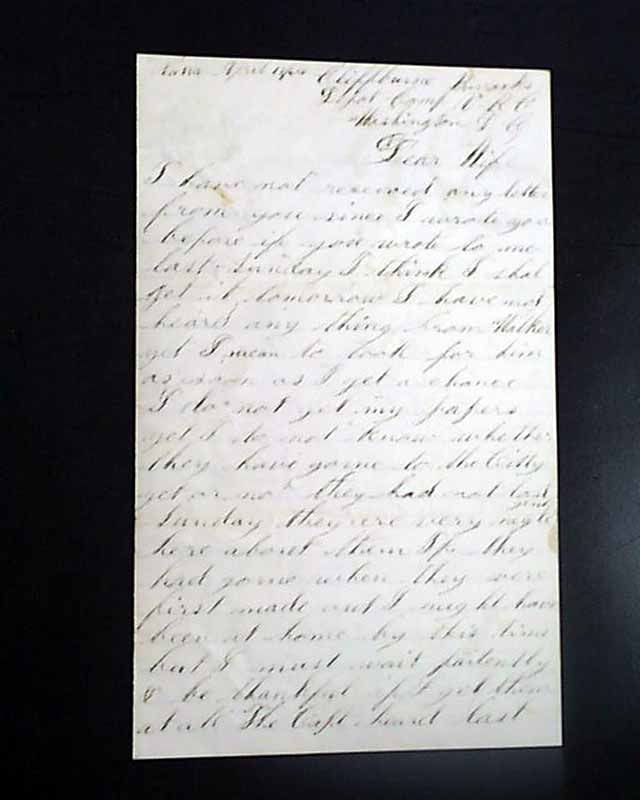 April Cliffburne Barracks
Depot Camp V R C
Washington D C
Dear Wife
I have not received any letter
from you since I wrote you
before if you wrote to me
last Sunday I think I shal
get it tomorrow I have not
heard any thing from Walker
yet I mean to look for him
as soon as I get a chance
I do not get my papers
yet I do not know whether
they have gorne to the Citty
yet or no they had not last
Sunday they ere very negle
gent
here about them If they
had gorne when they were
first made out I might have
been at home by this time
but I must wait patently
& be thankful if I get them
at all The Capt heard last